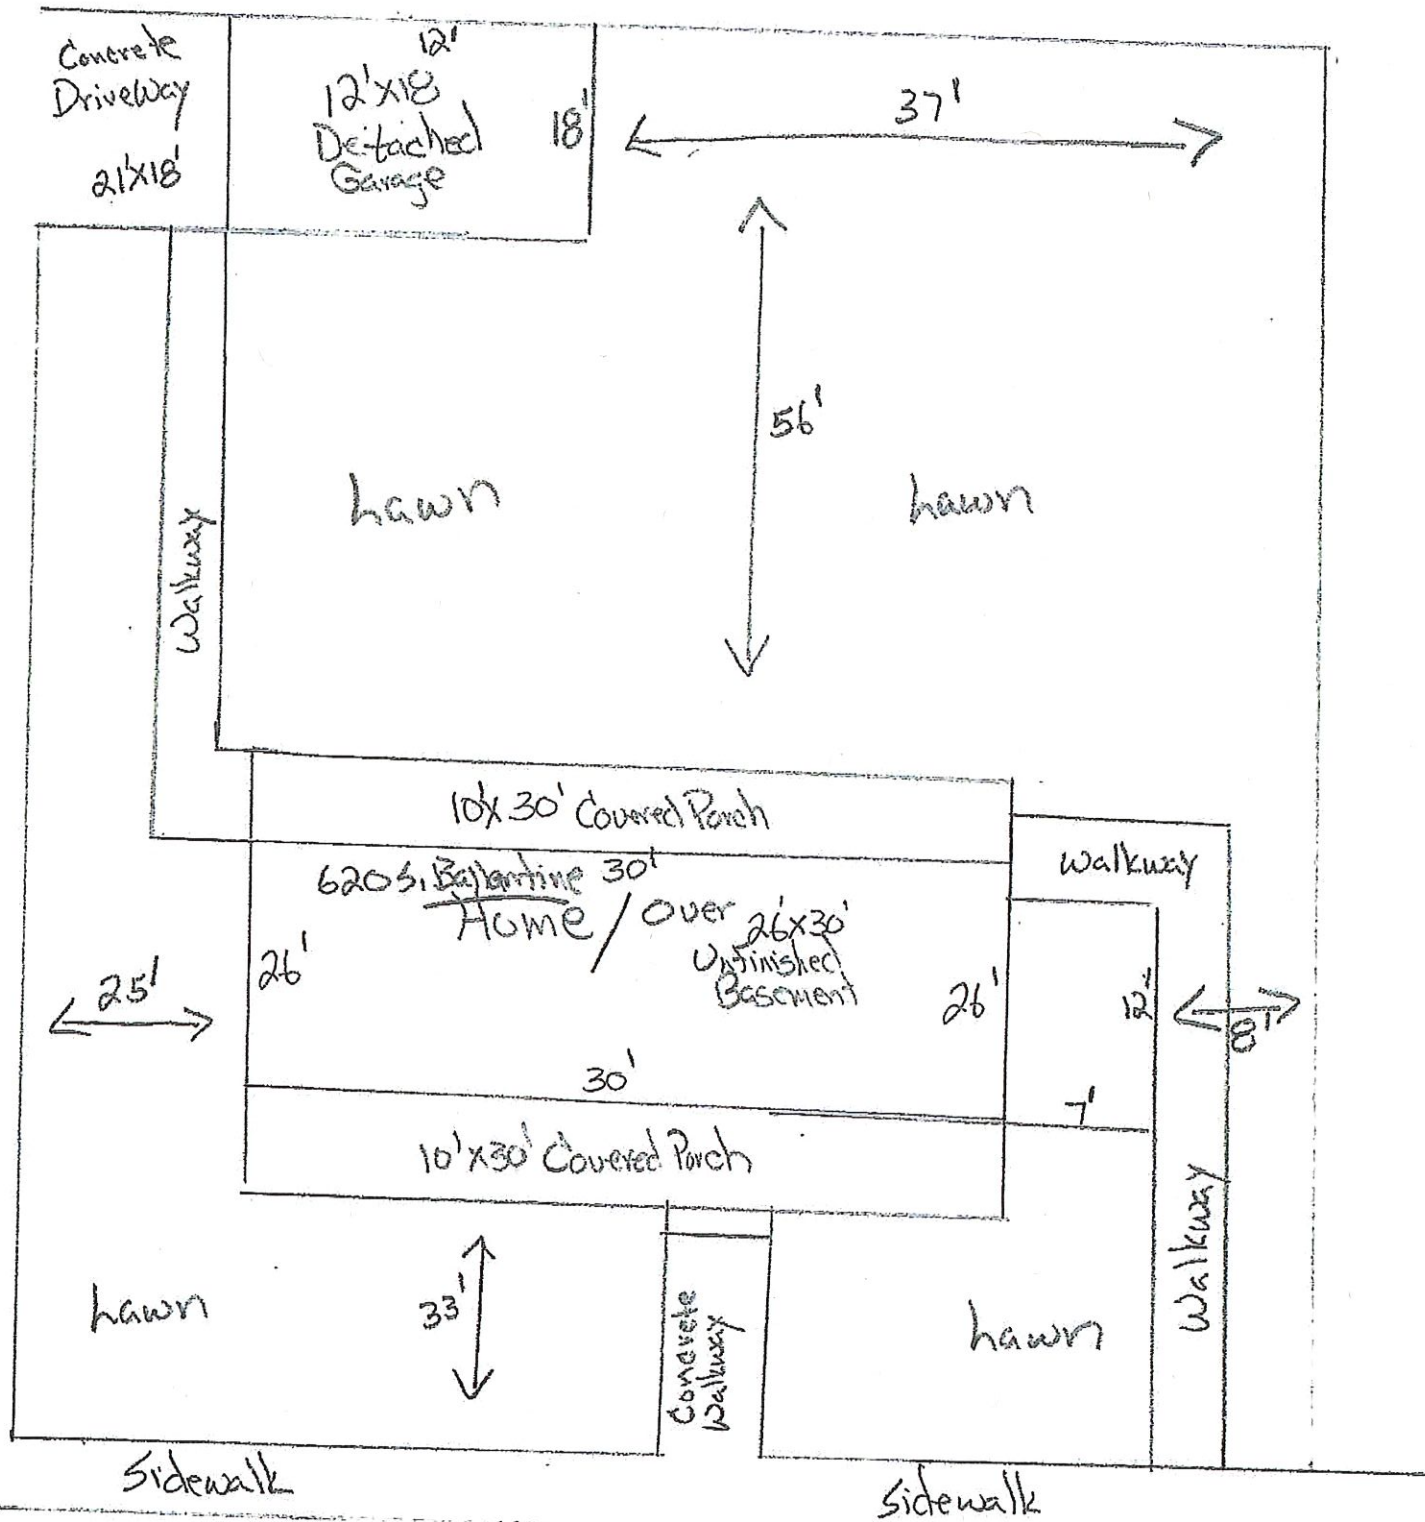 Concrete
DriveWay
21'X18'
12'
12'X18
Detached
Garage
18'
37'
56'
Lawn
Lawn
Walkway
10'X 30' Covered Porch
Walkway
620 S. Ballantine 30'
Home / Over 26'X30'
Unfinished
Basement
26'
26'
25'
12'
8'
30'
7'
10'X30' Covered Porch
Walkway
Lawn
33'
Concrete
Walkway
Lawn
Sidewalk
Sidewalk